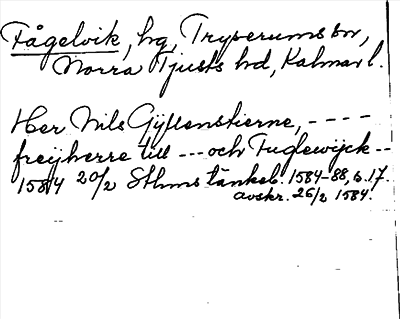 Fågelvik, hg, Tryserums sn,
Norra Tjusts hd, Kalmar l.
Her Nils Gÿllenstierne, ----
freÿherre till --- och Fuglewijck --
1584 20/2 Sthms tänkeb. 1584-88, s. 17.
avskr. 26/2 1584.